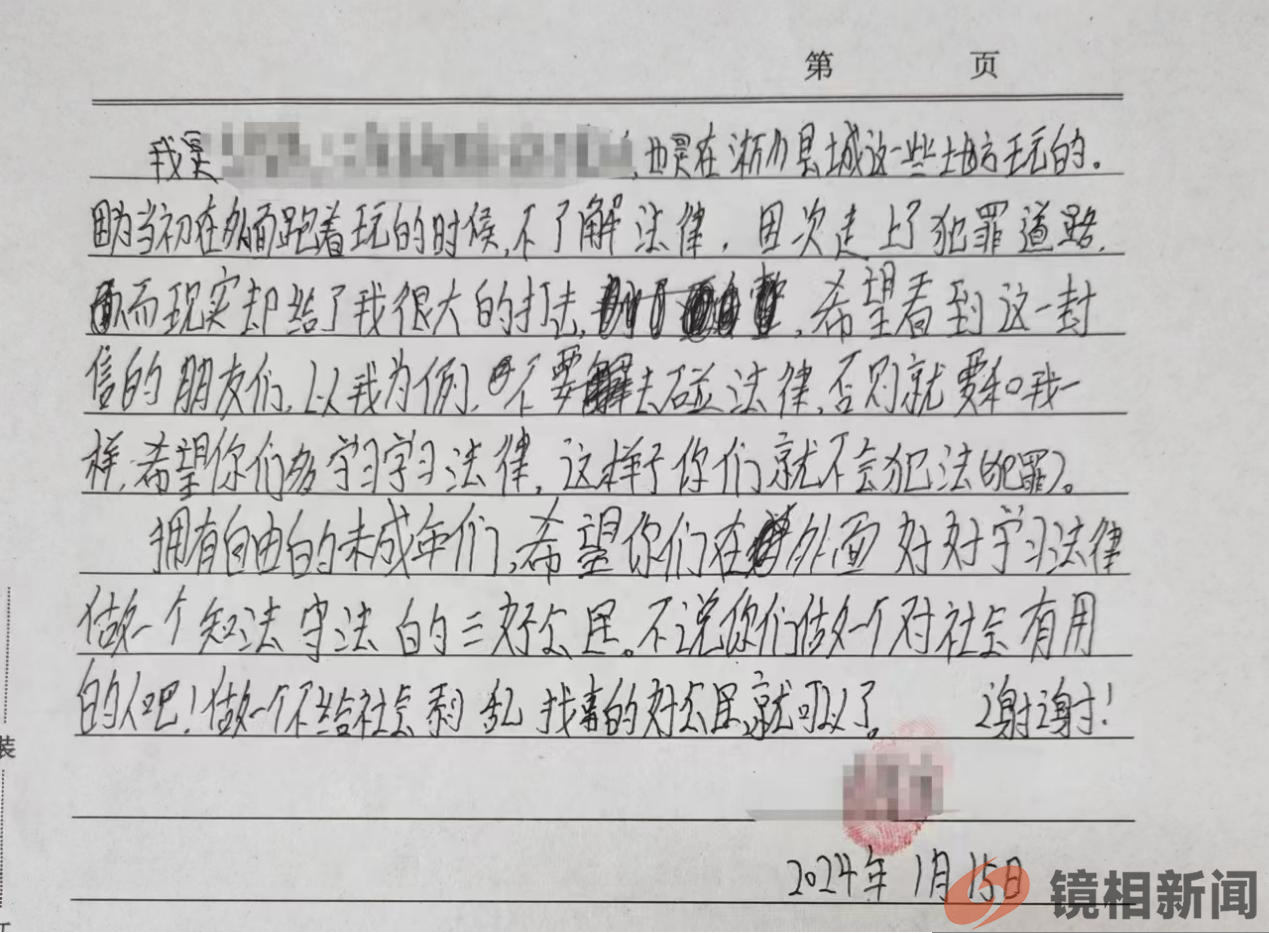 第 页
我是 ,也是在淅川县城这一些地方玩的。
因为当初在外面跑着玩的时候,不了解法律,因次走上了犯罪道路,
而现实却给了我很大的打击, ,希望看到这一封
信的朋友们,以我为例,不要去碰法律,否则就要和我一
样,希望你们多学习学习法律,这样子你们就不会犯法(犯罪)。
拥有自由的未成年们,希望你们在外面好好学习法律
做一个知法守法的三好公民。不说你们做一个对社会有用
的人吧!做一个不给社会 乱找事的好公民就可以了。 谢谢!
2024年1月15日
装
镜相新闻